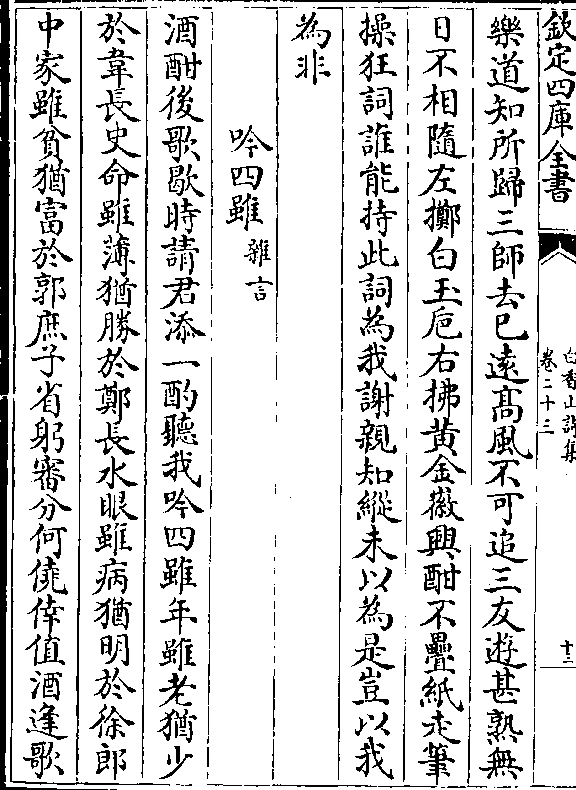 欽定四庫全書
白香山詩集
卷二十三
十三
樂道知所歸三師去已遠髙風不可追三友遊甚熟無
日不相隨左擲白玉巵右拂黄金徽興酣不疊紙走筆
操狂詞誰能持此詞為我謝親知縱未以為是豈以我
為非
吟四雖雜言
酒酣後歌歇時請君添一酌聽我吟四雖年雖老猶少
於韋長史命雖薄猶勝於鄭長水眼雖病猶明於徐郎
中家雖貧猶富於郭庶子省躬審分何僥倖值酒逢歌